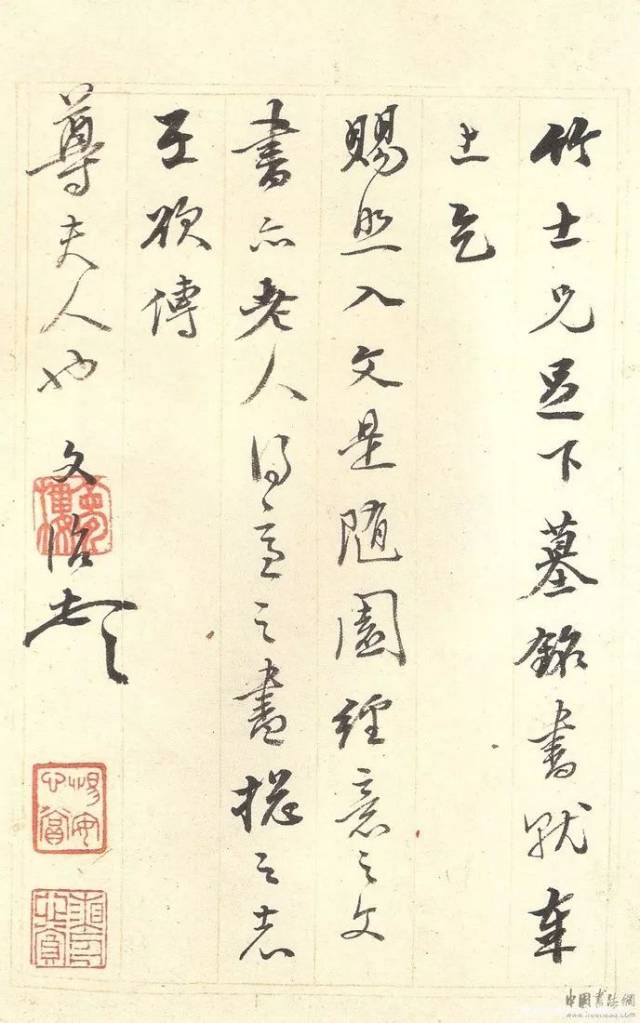 竹士兄足下墓銘書就奉
上乞
賜照入文是隨園經意之文
書亦老人得意之書總之志
在欲傳
尊夫人也 文治頓首
中國書法網